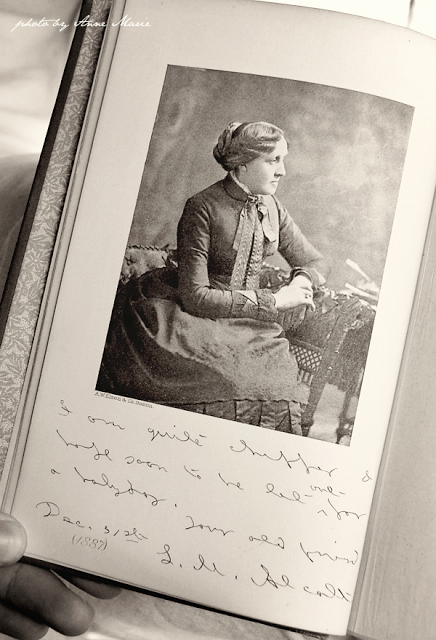 photo by Anne Marie
A.W. Elson & Co. Boston.
I am quite chipper &
hope soon to be let out for
a holyday. Your old friend
Dec. 31st
(1887)
L. M. Alcott